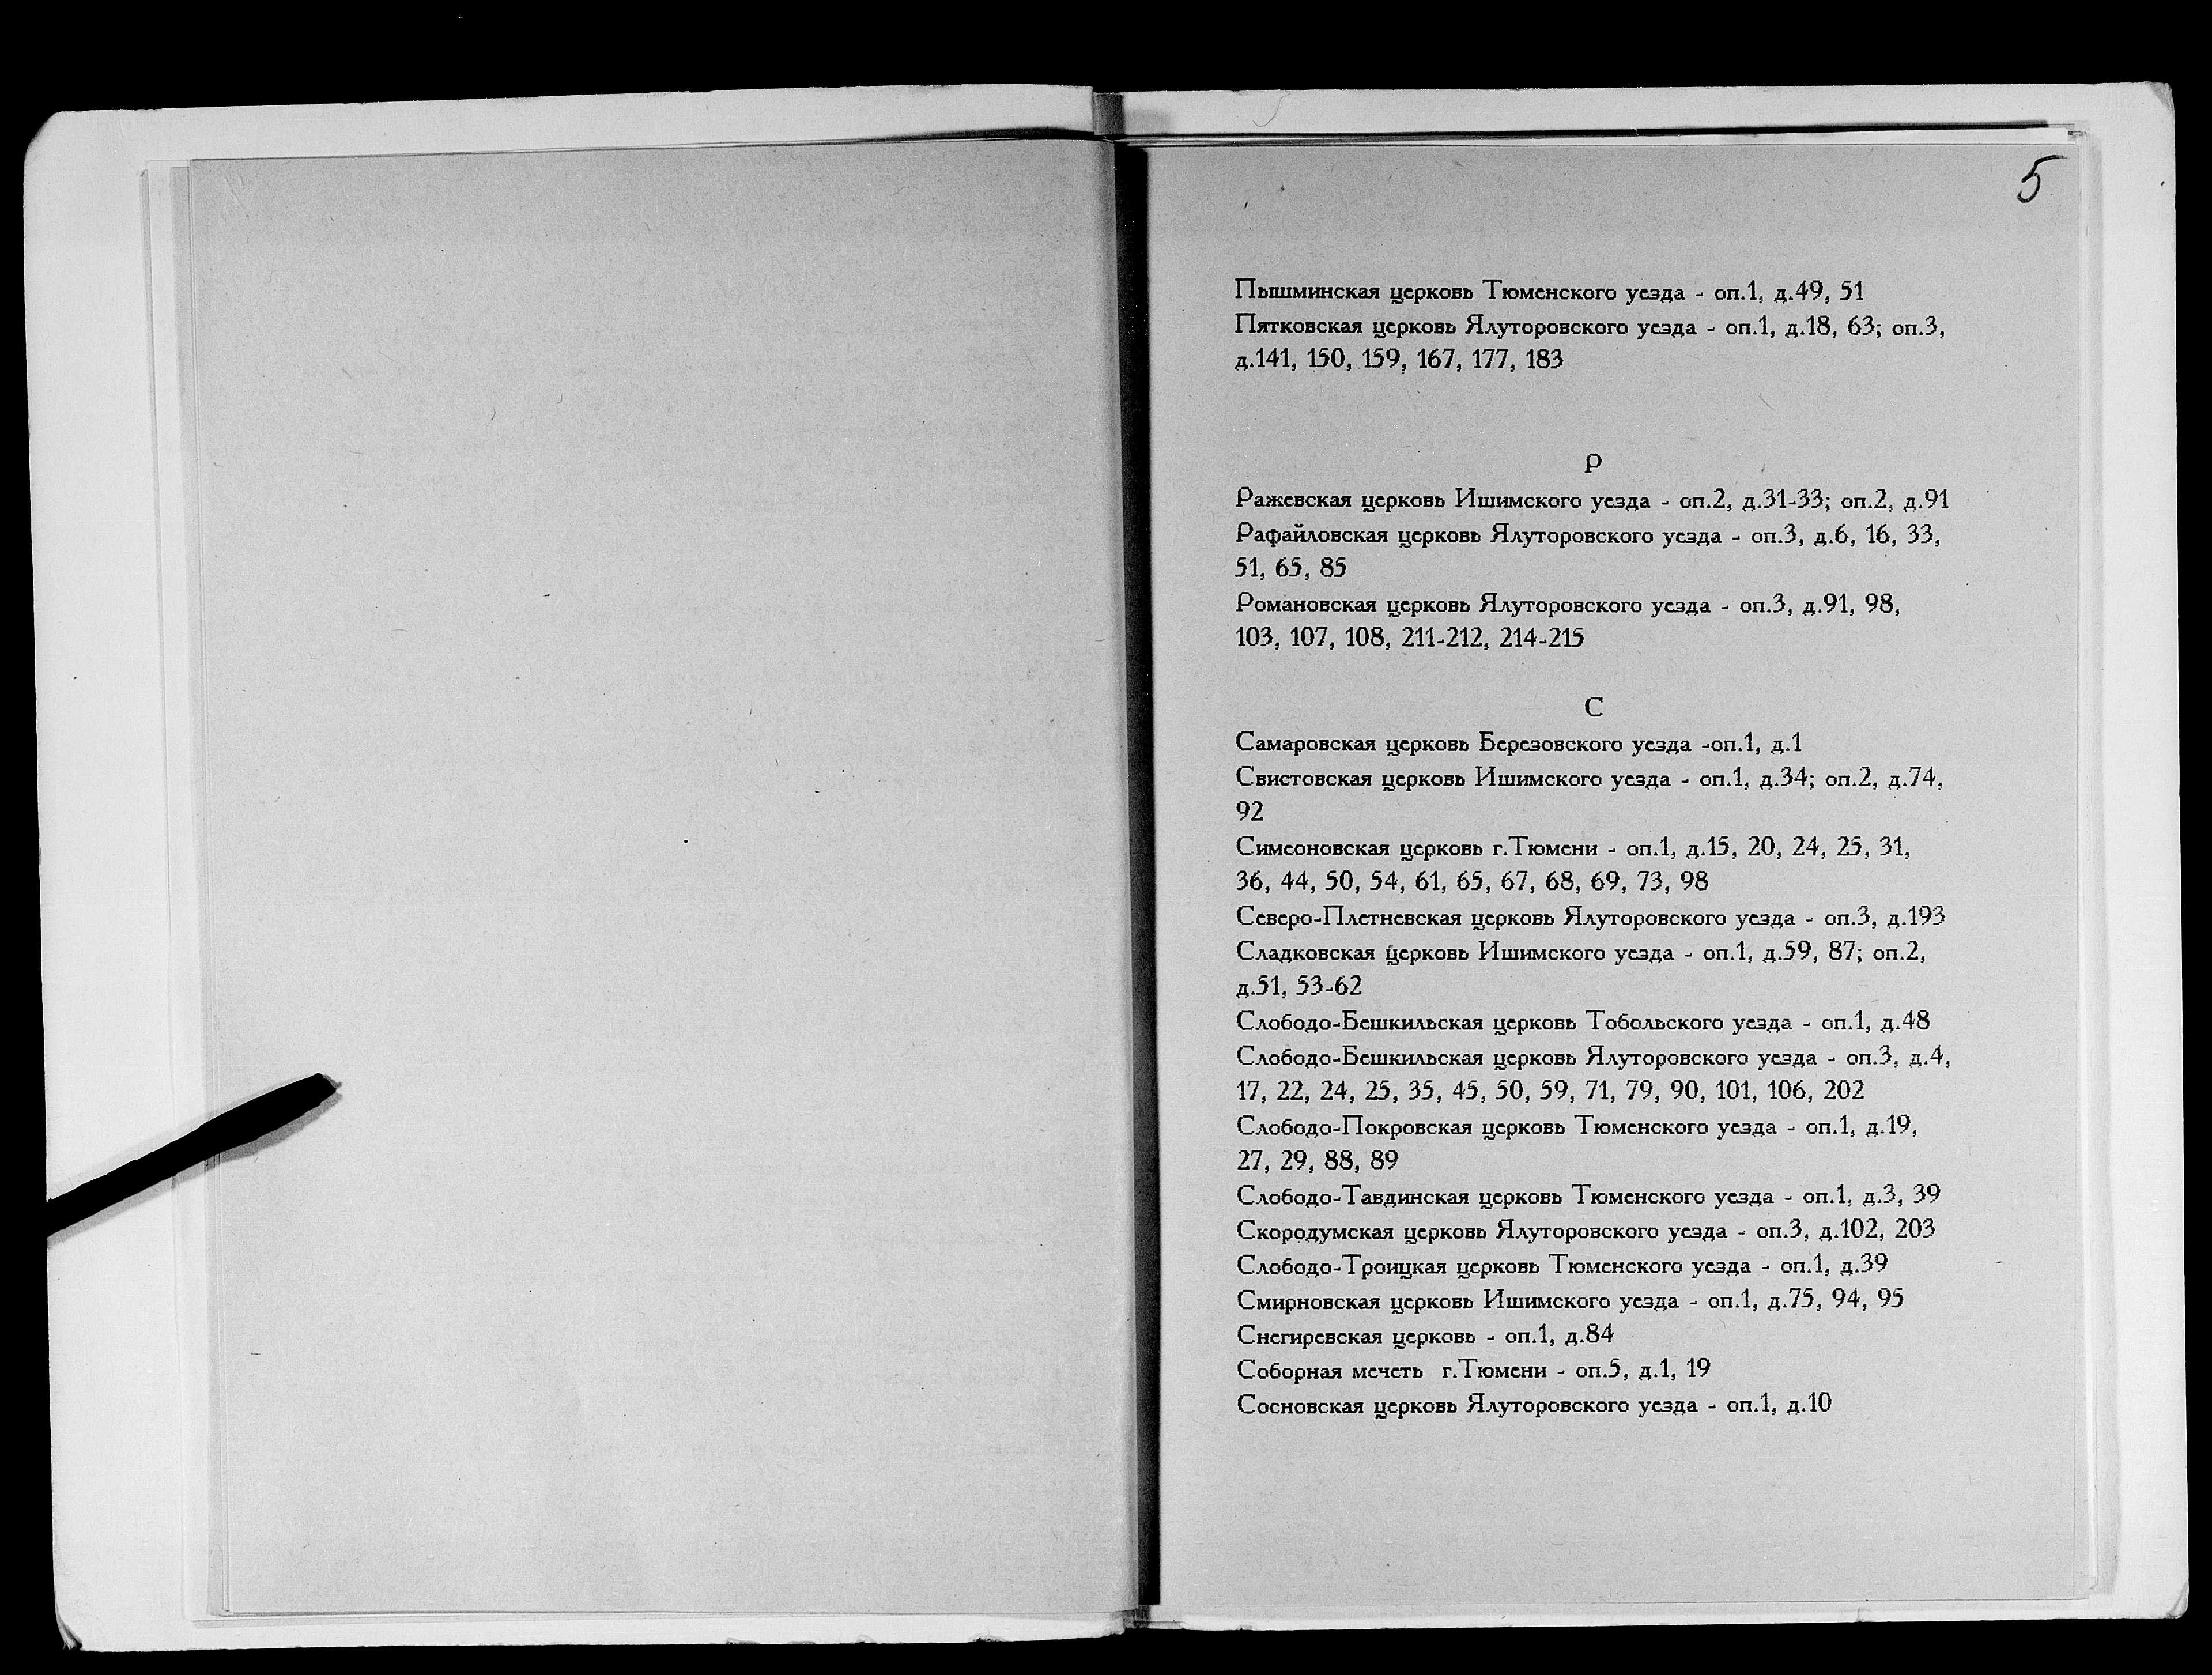 5
Пышминская церковь Тюменского уезда - оп.1, д.49, 51
Пятковская церковь Ялуторовского уезда - оп.1, д.18, 63; оп.3,
д.141, 150, 159, 167, 177, 183
Р
Ражевская церковь Ишимского уезда - оп.2, д.31-33; оп.2, д.91
Рафайловская церковь Ялуторовского уезда - оп.3, д.6, 16, 33,
51, 65, 85
Романовская церковь Ялуторовского уезда - оп.3, д.91, 98,
103, 107, 108, 211-212, 214-215
С
Самаровская церковь Березовского уезда -оп.1, д.1
Свистовская церковь Ишимского уезда - оп.1, д.34; оп.2, д.74,
92
Симеоновская церковь г.Тюмени - оп.1, д.15, 20, 24, 25, 31,
36, 44, 50, 54, 61, 65, 67, 68, 69, 73, 98
Северо-Плетневская церковь Ялуторовского уезда - оп.3, д.193
Сладковская церковь Ишимского уезда - оп.1, д.59, 87; оп.2,
д.51, 53-62
Слободо-Бешкильская церковь Тобольского уезда - оп.1, д.48
Слободо-Бешкильская церковь Ялуторовского уезда - оп.3, д.4,
17, 22, 24, 25, 35, 45, 50, 59, 71, 79, 90, 101, 106, 202
Слободо-Покровская церковь Тюменского уезда - оп.1, д.19,
27, 29, 88, 89
Слободо-Тавдинская церковь Тюменского уезда - оп.1, д.3, 39
Скородумская церковь Ялуторовского уезда - оп.3, д.102, 203
Слободо-Троицкая церковь Тюменского уезда - оп.1, д.39
Смирновская церковь Ишимского уезда - оп.1, д.75, 94, 95
Снегиревская церковь - оп.1, д.84
Соборная мечеть г.Тюмени - оп.5, д.1, 19
Сосновская церковь Ялуторовского уезда - оп.1, д.10